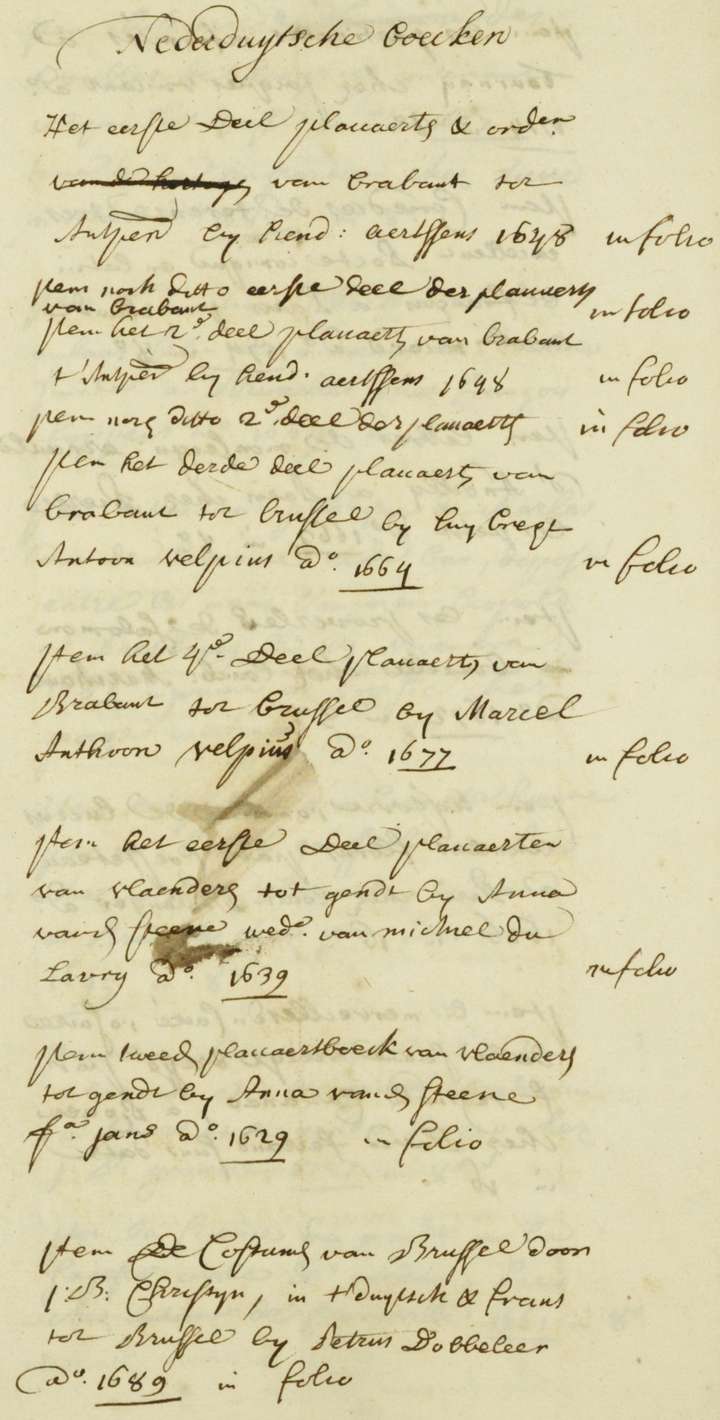 Nederduytsche boecken
Het eerste Deel placaerts & orden.
vande hertoge van brabant tot
Antpen by hend: aertssens 1648 in folio
jtem noch ditto eerste deel der placaerts
van brabant in folio
jtem het 2e. deel placaets van brabant
t'Antpen by hend. aertssens 1648 in folio
jtem noch ditto 2e. deel der placaetts in folio
jtem het derde deel placaerts van
brabant tot brussel by huybregt
Antoon velpius ao. 1664 in folio
jtem het 4e. Deel placaerts van
Brabant tot brussel by Marcel
Anthoon velpius ao. 1677 in folio
jtem het eerste Deel placaerten
van vlaenderen tot gendt by Anna
vanden steene wede. van michiel du
Lavry ao. 1639 in folio
jtem tweede placaertboeck van vlaenderen
tot gendt by Anna vanden steene
fa. jans ao. 1629 in folio
jtem de Costumen van Brussel door
j: B: Christyn, in t'duytsch & frans
tot Brussel by Petrus Dobbeleer
ao. 1689 in folio